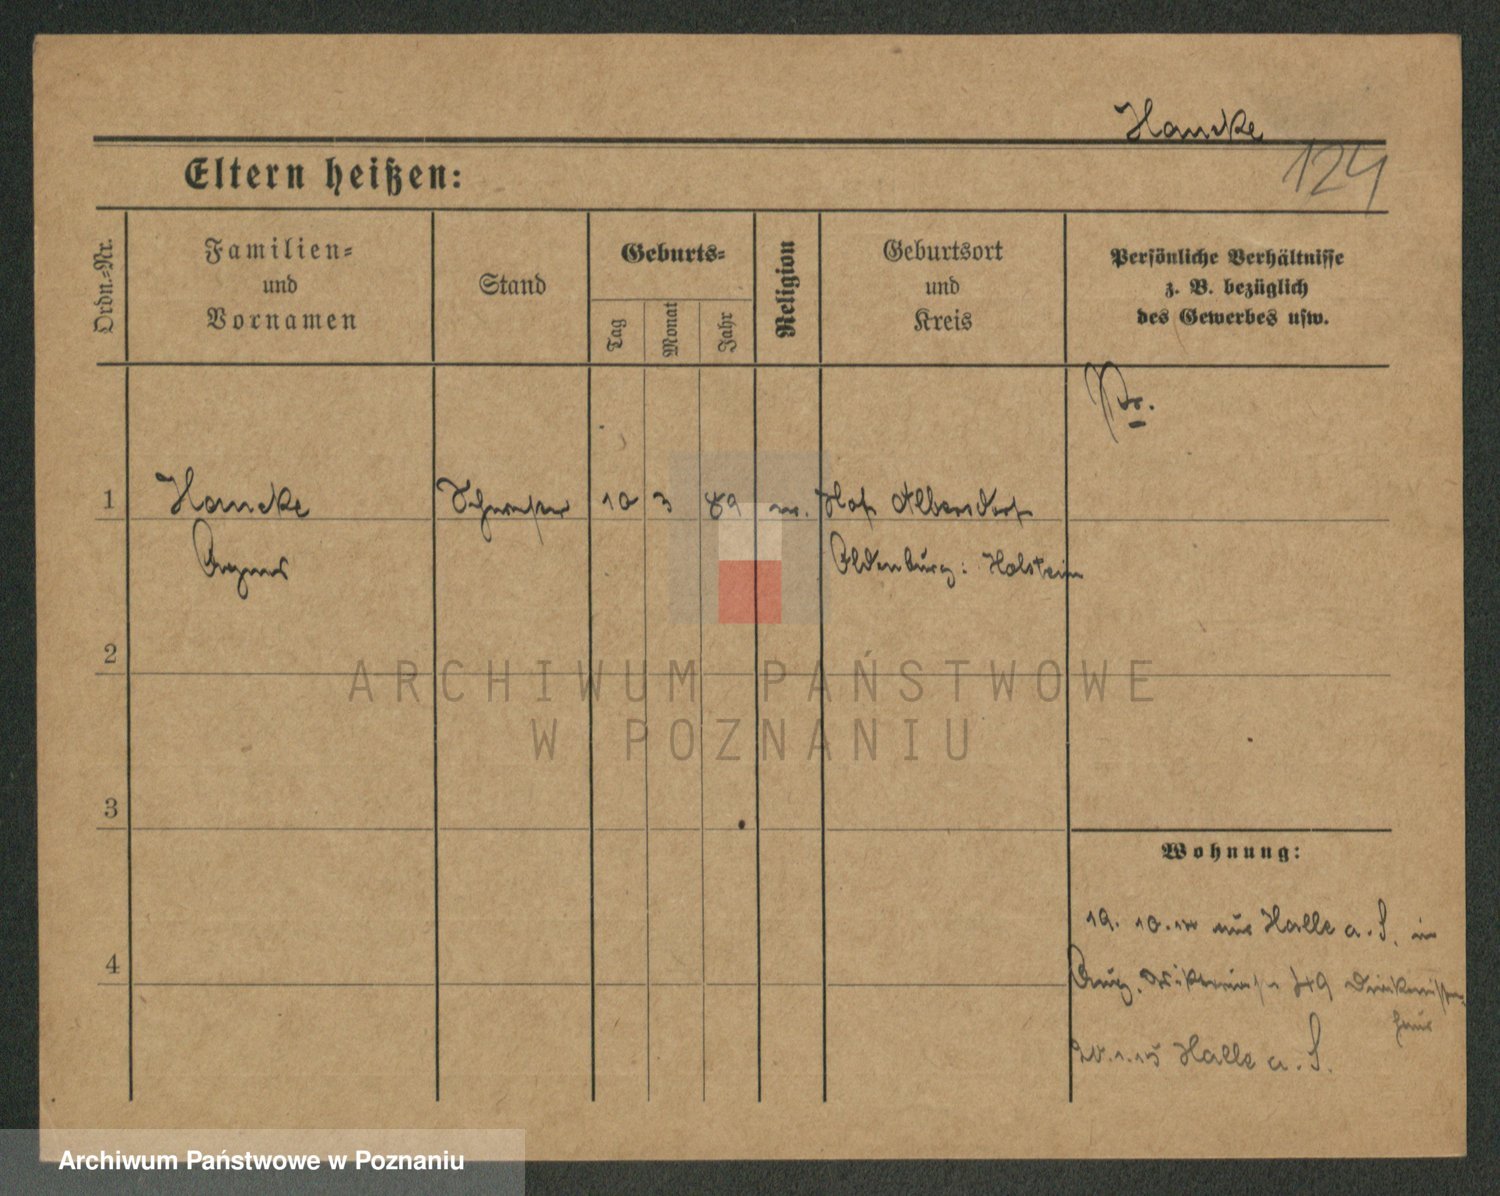 Hancke
124
Eltern heißen:
Ordn.-Nr.
Familien-
und
Vornamen
Stand
Geburts-
Tag
Monat
Jahr
Religion
Geburtsort
und
Kreis
Persönliche Verhältnisse
z. B. bezüglich
des Gewerbes usw.
Pr.
1
Hancke Schwester 10 3 89 Hof Albersdorf
Agnes Oldenburg: Holstein
2
ARCHIWUM PAŃSTWOWE
W POZNANIU
3
Wohnung:
19. 10. aus Halle a. S. in
4
Aug. Viktoriastr 49 Diakonissen
haus
20.1.15 Halle a. S.
Archiwum Państwowe w Poznaniu